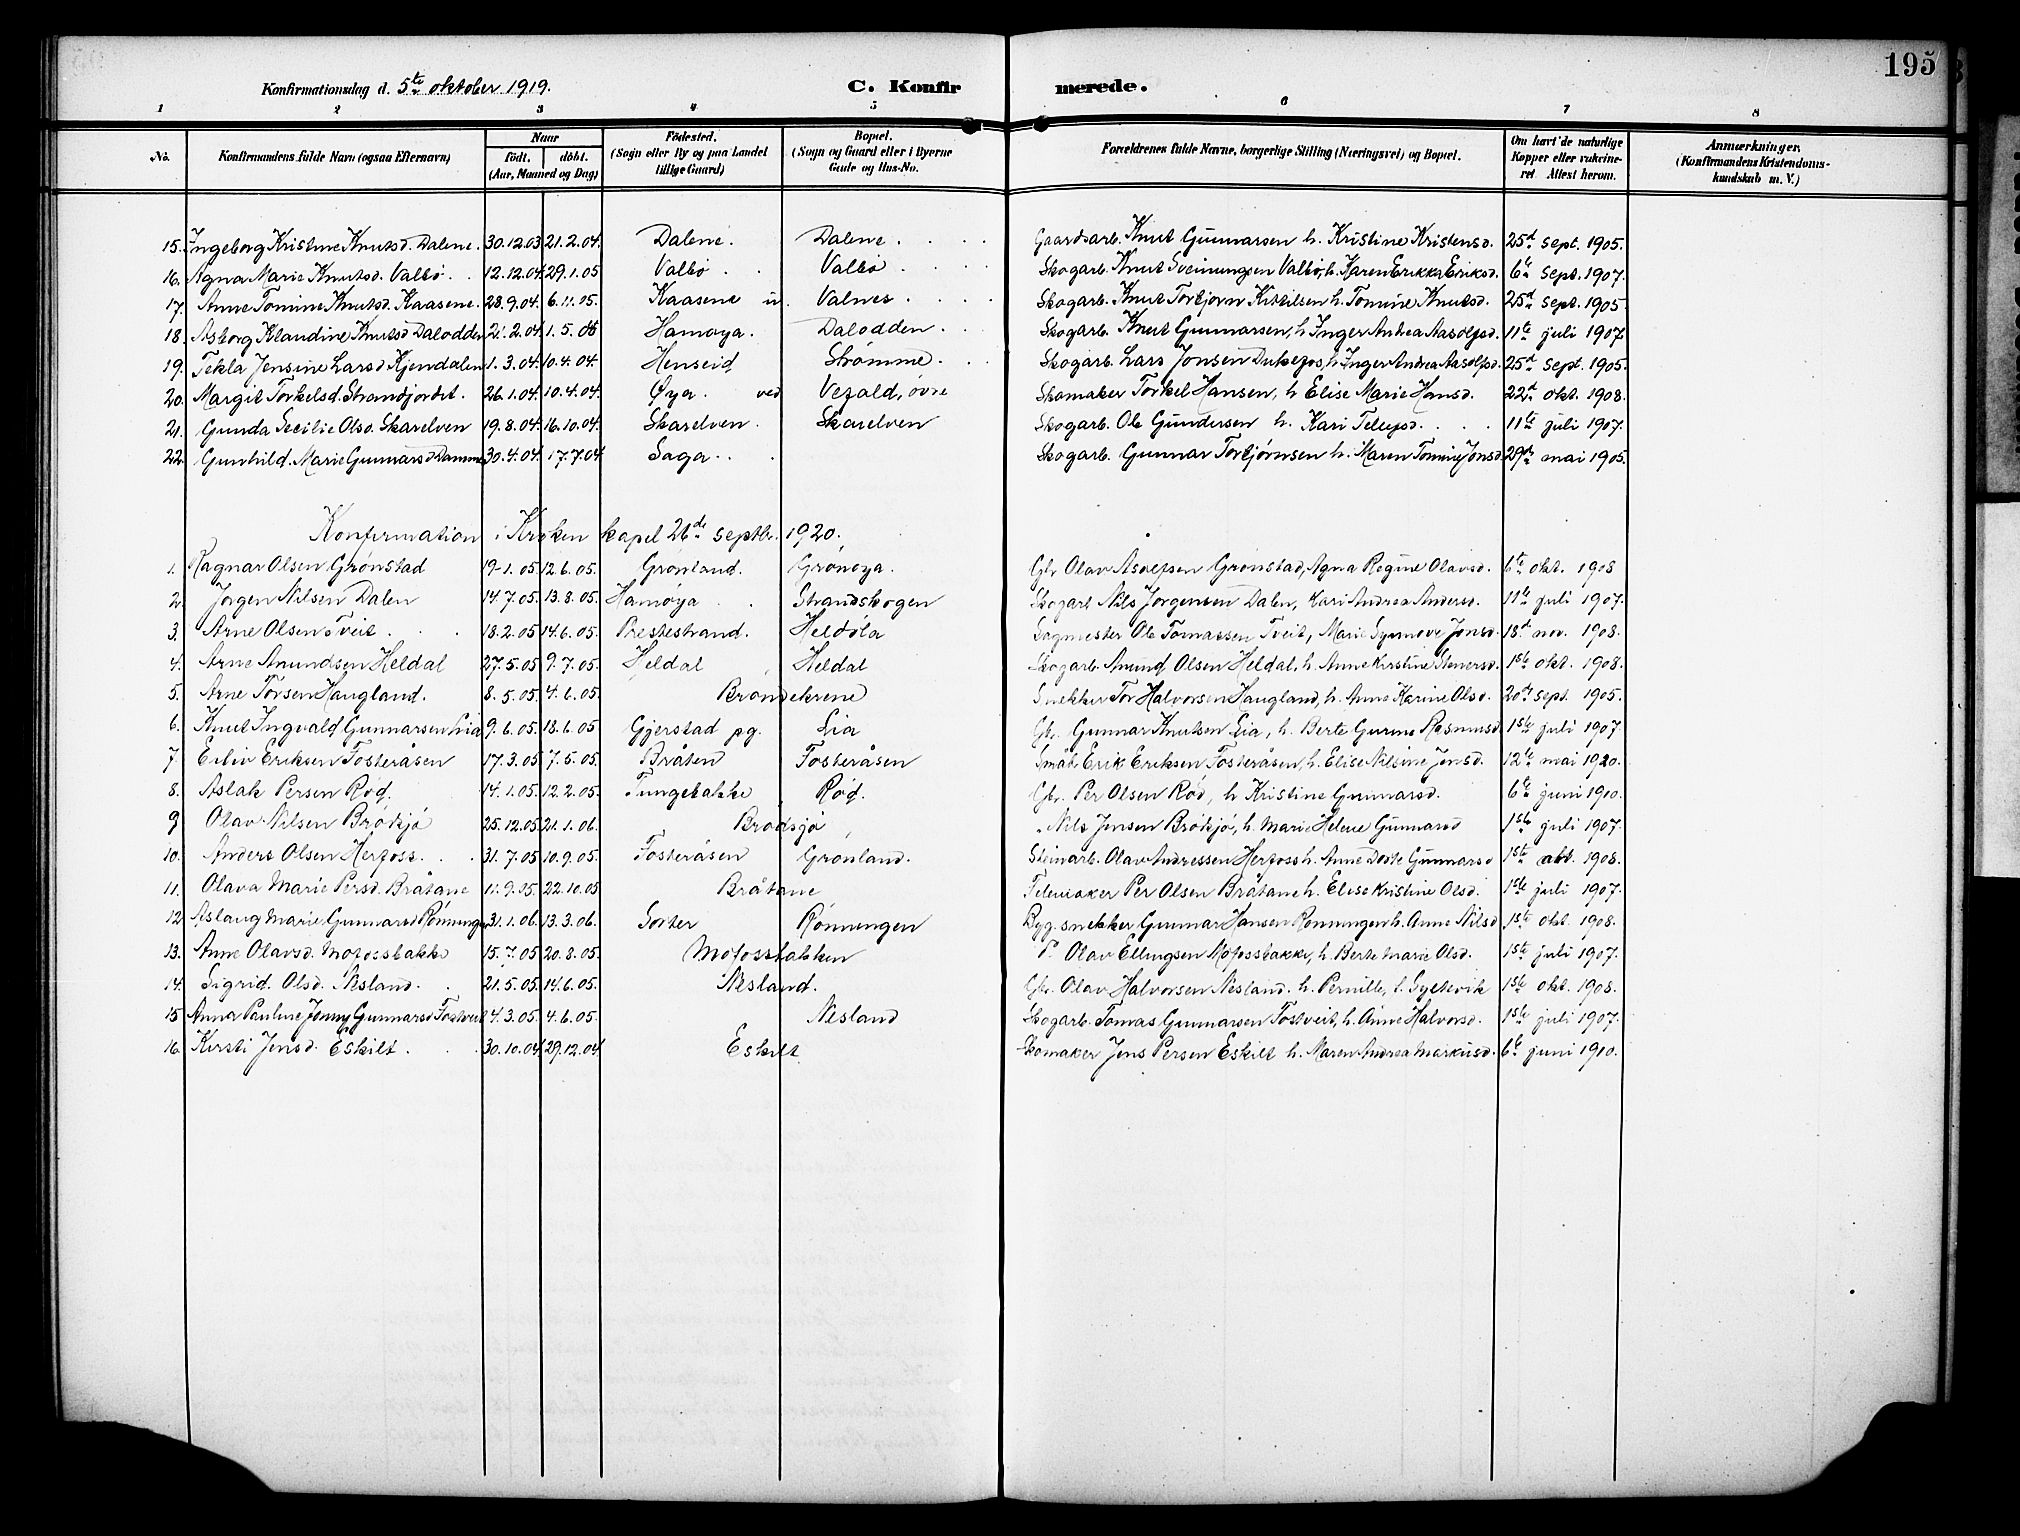 195
Konfirmationsdag d. 5te oktober 1919.
C. Konfirmerede.
1 2 3 4 5 6 7 8
No. Konfirmandens fulde Navn (ogsaa Efternavn) Naar födt. döbt. (Aar, Maaned og Dag) Födested. (Sogn eller By og paa Landet tillige Gaard) Bopæl. (Sogn og Gaard eller i Byerne Gade og Hus-No. Forældrenes fulde Navne, borgerlige Stilling (Næringsvei) og Bopæl. Om havt de naturlige Kopper eller vakcineret Attest herom. Anmærkninger. (Konfirmandens Kristendomskundskab m. V.)
15. Ingeborg Kristine Knutsd. Dalene. 30.12.03 21.2.04. Dalene. Dalene. Gaardsarb. Knut Gunnarsen h. Kristine Kristensd. 25de sept. 1905.
16. Agna Marie Knutsd. Valbö. 12.12.04 29.1.05 Valbö Valbö Skogarb. Knut Sveinungsen Valbö, h. Karen Erikka Eriksd. 6te sept. 1907.
17. Anne Tomine Knutsd. Kaasene. 28.9.04. 6.11.05. Kaasene u. Valnes Skogarb. Knut Torbjörn Kittilsen h. Tomine Knutsd. 25de sept. 1905.
18. Asborg Klaudine Knutsd Dalodden 2.2.04 1.5. Hamöya. Dalodden. Skogarb. Knut Gunnarsen, h Inger Andrea Aasolfsd. 11te juli 1907
19. Tekla Jensine Larsd Kjendalen 1.3.04. 10.4.04. Henseid Strömme. Skogarb. Lars Jonsen h. Inger Andrea Aasolfsd. 25de sept. 1905.
20. Margit Torkelsd. Strandjordet. 26.1.04. 10.4.04. Øya. ved Vefald, övre Skomaker Torkel Hansen, h Elise Marie Hansd. 22de okt. 1908.
21. Gunda Secilie Olsd. Skarelven 19.8.04. 16.10.04. Skarelven. Skarelven Skogarb. Ole Gundersen h. Kari Tellefsd. 11te juli 1907.
22. Gunhild Marie Gunnarsd Dammen 30.4.04. 17.7.04 Saga Skogarb. Gunnar Torbjörnsen h. Maren Tomine Jonsd. 29de mai 1905.
Konfirmation i Kroken kapel 26de septbr. 1920.
1. Ragnar Olsen Grönstad 19.1.05. 12.6.05. Grönland. Grönöya. Gbr Olav Asolfsen Grönstad, Agna Regine Olavsd. 6te okt. 1908
2. Jörgen Nilsen Dalen 14.7.05. 13.8.05. Hamöya Strandskogen Skogarb Nils Jörgensen Dalen, Kari Andrea Andersd. 11te juli 1907.
3. Arne Olsen Tveit 18.2.05. 14.6.05. Prestestrand. Heldöla Sagmester Ole Tomassen Tveit, Marie Synnove Jonsd. 18de nov. 1908.
4. Arne Amundsen Heldal 27.5.05. 9.7.05. Heldal Heldal Skogarb. Amund Olsen Heldal, h. Anne Kirstine Stenersd. 1ste okt. 1908.
5. Arne Torsen Haugland. 8.5.05. 4.6.05. Bröndekrene Snekker Tor Halvorsen Haugland, h. Anne Karine Olsd. 20de sept. 1905.
6. Knut Ingvald Gunnarsen Lia 9.6.05. 18.6.05 Gjerstad pg. Lia Gbr. Gunnar Knutsen Lia, h. Berte Gurine Rasmusd. 1ste juli 1907.
7. Eiliv Eriksen Fosteråsen 17.3.05. 7.5.05. Bråten Fosteråsen Småbr Erik Eriksen Fosteråsen, h. Elise Nilsine Jensd. 12te mai 1920.
8. Aslak Persen Röd. 14.1.05. 12.2.05. Tangebakke Röd. Gbr. Per Olsen Röd, h Kristine Gunnarsd. 6te juni 1910.
9 Olav Nilsen Brökjö 25.12.05 21.1.06. Brödsjö " Nils Jensen Brökjö, h. Marie Helene Gunnarsd 1ste juli 1907.
10. Anders Olsen Herfoss. 31.7.05. 10.9.05. Fosteråsen Grönland. Steinarb. Olav Andreassen Herfoss h. Anne Dorte Gunnarsd 1ste okt. 1908.
11. Olava Marie Persd. Bråtane 11.9.05. 22.10.05 Bråtane Per Olsen Bråtane h. Elise Kristine Olsd. 1ste juli 1907.
12 Aslaug Marie Gunnarsd Rönningen 31.1.06. 13.3.06. Sorter Rönningen Byg.snekker Gunnar Hansen Rönningen h. Anne Nilsd 1ste okt. 1908.
13. Anne Olavsd. Mofossbakke 15.7.05 20.8.05. Mofossbakken Olav Ellingsen Mofossbakke, h. Berte Marie Olsd. 1ste juli 1907.
14. Sigrid Olsd. Nesland. 21.5.05. 14.6.05. Nesland. Gbr. Olav Halvorsen Nesland. h. Pernille, f. 1ste okt. 1908.
15 Anna Pauline Jenny Gunnarsd Fostveit 4.3.05. 4.6.05. Nesland Skogarb. Tomas Gunnarsen Fostveit, h. Anne Halvorsd. 1ste juli 1907.
16. Kirsti Jensd. Eskilt. 30.10.04 29.12.04 Eskilt Skomaker Jens Persen Eskilt h. Maren Andrea Markusd. 6te juni 1910.